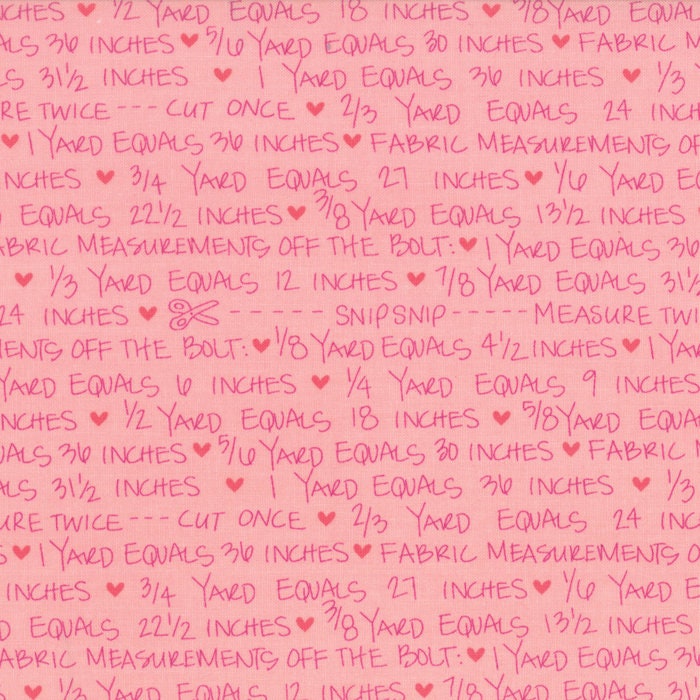 NCHES ♥ 1/2 YARD EQUALS 18 INCHES ♥ 5/8 YARD EQUAL
ALS 36 INCHES ♥ 5/6 YARD EQUALS 30 INCHES ♥ FABRIC M
LS 31 1/2 INCHES ♥ 1 YARD EQUALS 36 INCHES ♥ 1/3 Y
RE TWICE --- CUT ONCE ♥ 2/3 YARD EQUALS 24 INC
♥ 1 YARD EQUALS 36 INCHES ♥ FABRIC MEASUREMENTS OF
NCHES ♥ 3/4 YARD EQUALS 27 INCHES ♥ 1/6 YARD EQ
D EQUALS 22 1/2 INCHES ♥ 3/8 YARD EQUALS 13 1/2 INCHES
ABRIC MEASUREMENTS OFF THE BOLT: ♥ 1 YARD EQUALS 36
♥ 1/3 YARD EQUALS 12 INCHES ♥ 7/8 YARD EQUALS 31 1/2
24 INCHES ♥ ----- SNIP SNIP ----- MEASURE TWI
ENTS OFF THE BOLT: ♥ 1/8 YARD EQUALS 4 1/2 INCHES ♥ 1 YA
YARD EQUALS 6 INCHES ♥ 1/4 YARD EQUALS 9 INCHES
NCHES ♥ 1/2 YARD EQUALS 18 INCHES ♥ 5/8 YARD EQUA
ALS 36 INCHES ♥ 5/6 YARD EQUALS 30 INCHES ♥ FABRIC
ALS 31 1/2 INCHES ♥ 1 YARD EQUALS 36 INCHES ♥ 1/3
URE TWICE --- CUT ONCE ♥ 2/3 YARD EQUALS 24 IN
S ♥ 1 YARD EQUALS 36 INCHES ♥ FABRIC MEASUREMENTS O
INCHES ♥ 3/4 YARD EQUALS 27 INCHES ♥ 1/6 YARD E
D EQUALS 22 1/2 INCHES ♥ 3/8 YARD EQUALS 13 1/2 INCHES
ABRIC MEASUREMENTS OFF THE BOLT: ♥ 1 YARD EQUALS 36
♥ 1/3 YARD EQUALS 12 INCHES ♥ 7/8 YARD EQUALS 31